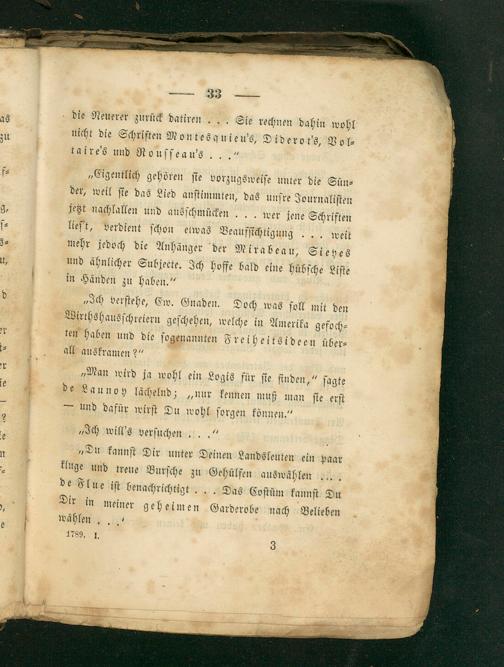 — 33 —
die Neuerer zurück datiren . . . Sie rechnen dahin wohl
nicht die Schriften Montesquieu's, Diderot's, Vol-
taire's und Rousseau's . . ."
„Eigentlich gehören sie vorzugsweise unter die Sün-
der, weil sie das Lied anstimmten, das unsre Journalisten
jetzt nachlallen und ausschmücken . . . wer jene Schriften
lies't, verdient schon etwas Beaufsichtigung . . . weit
mehr jedoch die Anhänger der Mirabeau, Sieyes
und ähnlicher Subjecte. Ich hoffe bald eine hübsche Liste
in Händen zu haben."
„Ich verstehe, Ew. Gnaden. Doch was soll mit den
Wirthshausschreiern geschehen, welche in Amerika gefoch-
ten haben und die sogenannten Freiheitsideen über-
all auskramen?"
„Man wird ja wohl ein Logis für sie finden," sagte
de Launoy lächelnd; „nur kennen muß man sie erst
— und dafür wirst Du wohl sorgen können."
„Ich will's versuchen . . ."
„Du kannst Dir unter Deinen Landsleuten ein paar
kluge und treue Bursche zu Gehülfen auswählen . . .
de Flue ist benachrichtigt . . . Das Costüm kannst Du
Dir in meiner geheimen Garderobe nach Belieben
wählen . . .'
1789. I.
3